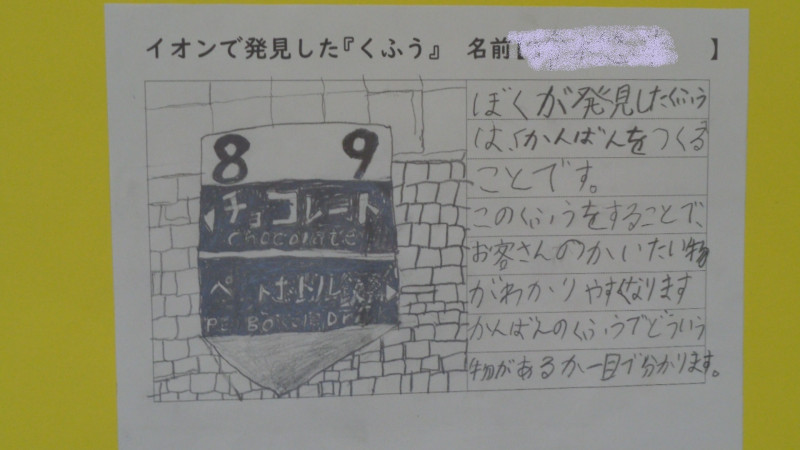 イオンで発見した『くふう』 名前【 】
8 9
チョコレート
chocolate
ペットボトル
ぼくが発見したくふう
は、かんばんをつくる
ことです。
このくふうをすることで、
お客さんのかいたい物
がわかりやすくなります
かんばんのくふうでどういう
物があるか一目で分かります。